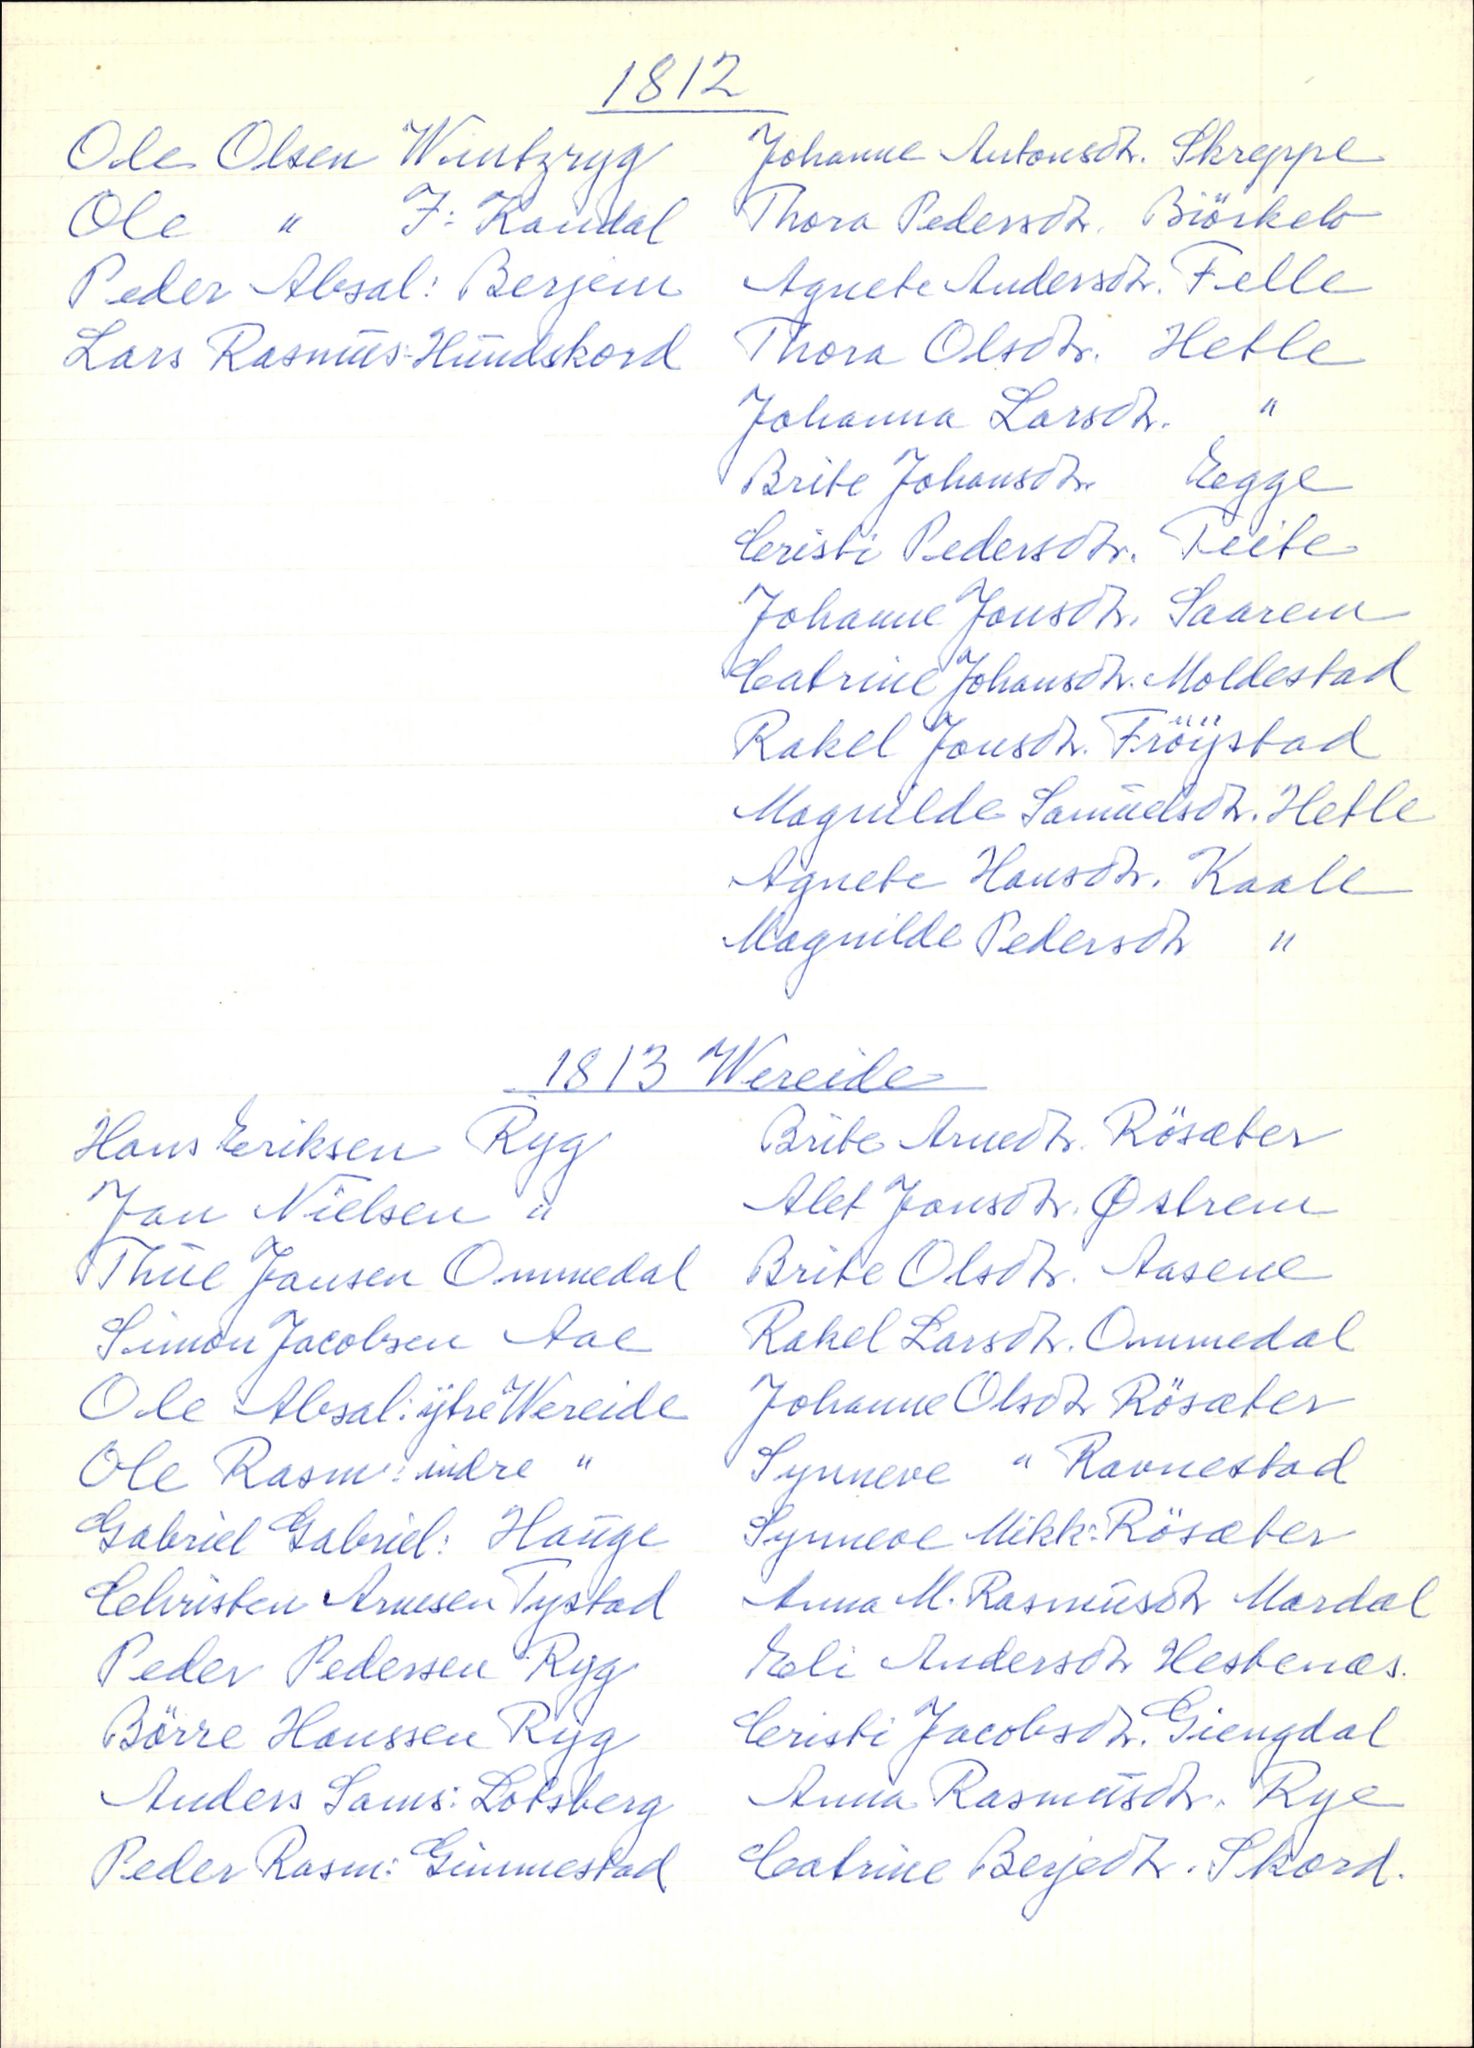 1812
Ole Olsen Wintzryg
Ole " F: Kandal
Peder Absal: Berjem
Lars Rasmus: Hundskord
Johanne Antonsdtr. Skreppe
Thora Pedersdtr. Biörkelo
Agnete Andersdtr. Felle
Thora Olsdtr. Hetle
Johanna Larsdtr. "
Brite Johansdtr. Eegge
Cristi Pedersdtr. Teite
Johanne Jonsdtr. Saarem
Catrine Johansdtr. Moldestad
Rakel Jonsdtr. Fröÿstad
Magnilde Samuelsdtr. Hetle
Agnete Hansdtr. Kaale
Magnilde Pedersdtr "
1813 Wereide
Hans Eriksen Ryg
Jan Nielsen "
Thue Jansen Ommedal
Simon Jacobsen Aae
Ole Absal: ÿtre Wereide
Ole Rasm: indre "
Gabriel Gabriel: Hauge
Christen Arnesen Tystad
Peder Pedersen Ryg
Börre Hanssen Ryg
Anders Sams: Lotsberg
Peder Rasm: Gimmestad
Brite Arnedtr. Rösæter
Alet Jansdtr. Østrem
Brite Olsdtr. Aasene
Rakel Larsdtr. Ommedal
Johanne Olsdtr Rösæter
Synneve " Ravnestad
Synneve Mikk: Rösæter
Anna M. Rasmusdtr Mardal
Eli Andersdtr Hestenæs.
Cristi Jacobsdtr. Giengdal
Anna Rasmusdtr. Rye
Catrine Berjedtr. Skord.